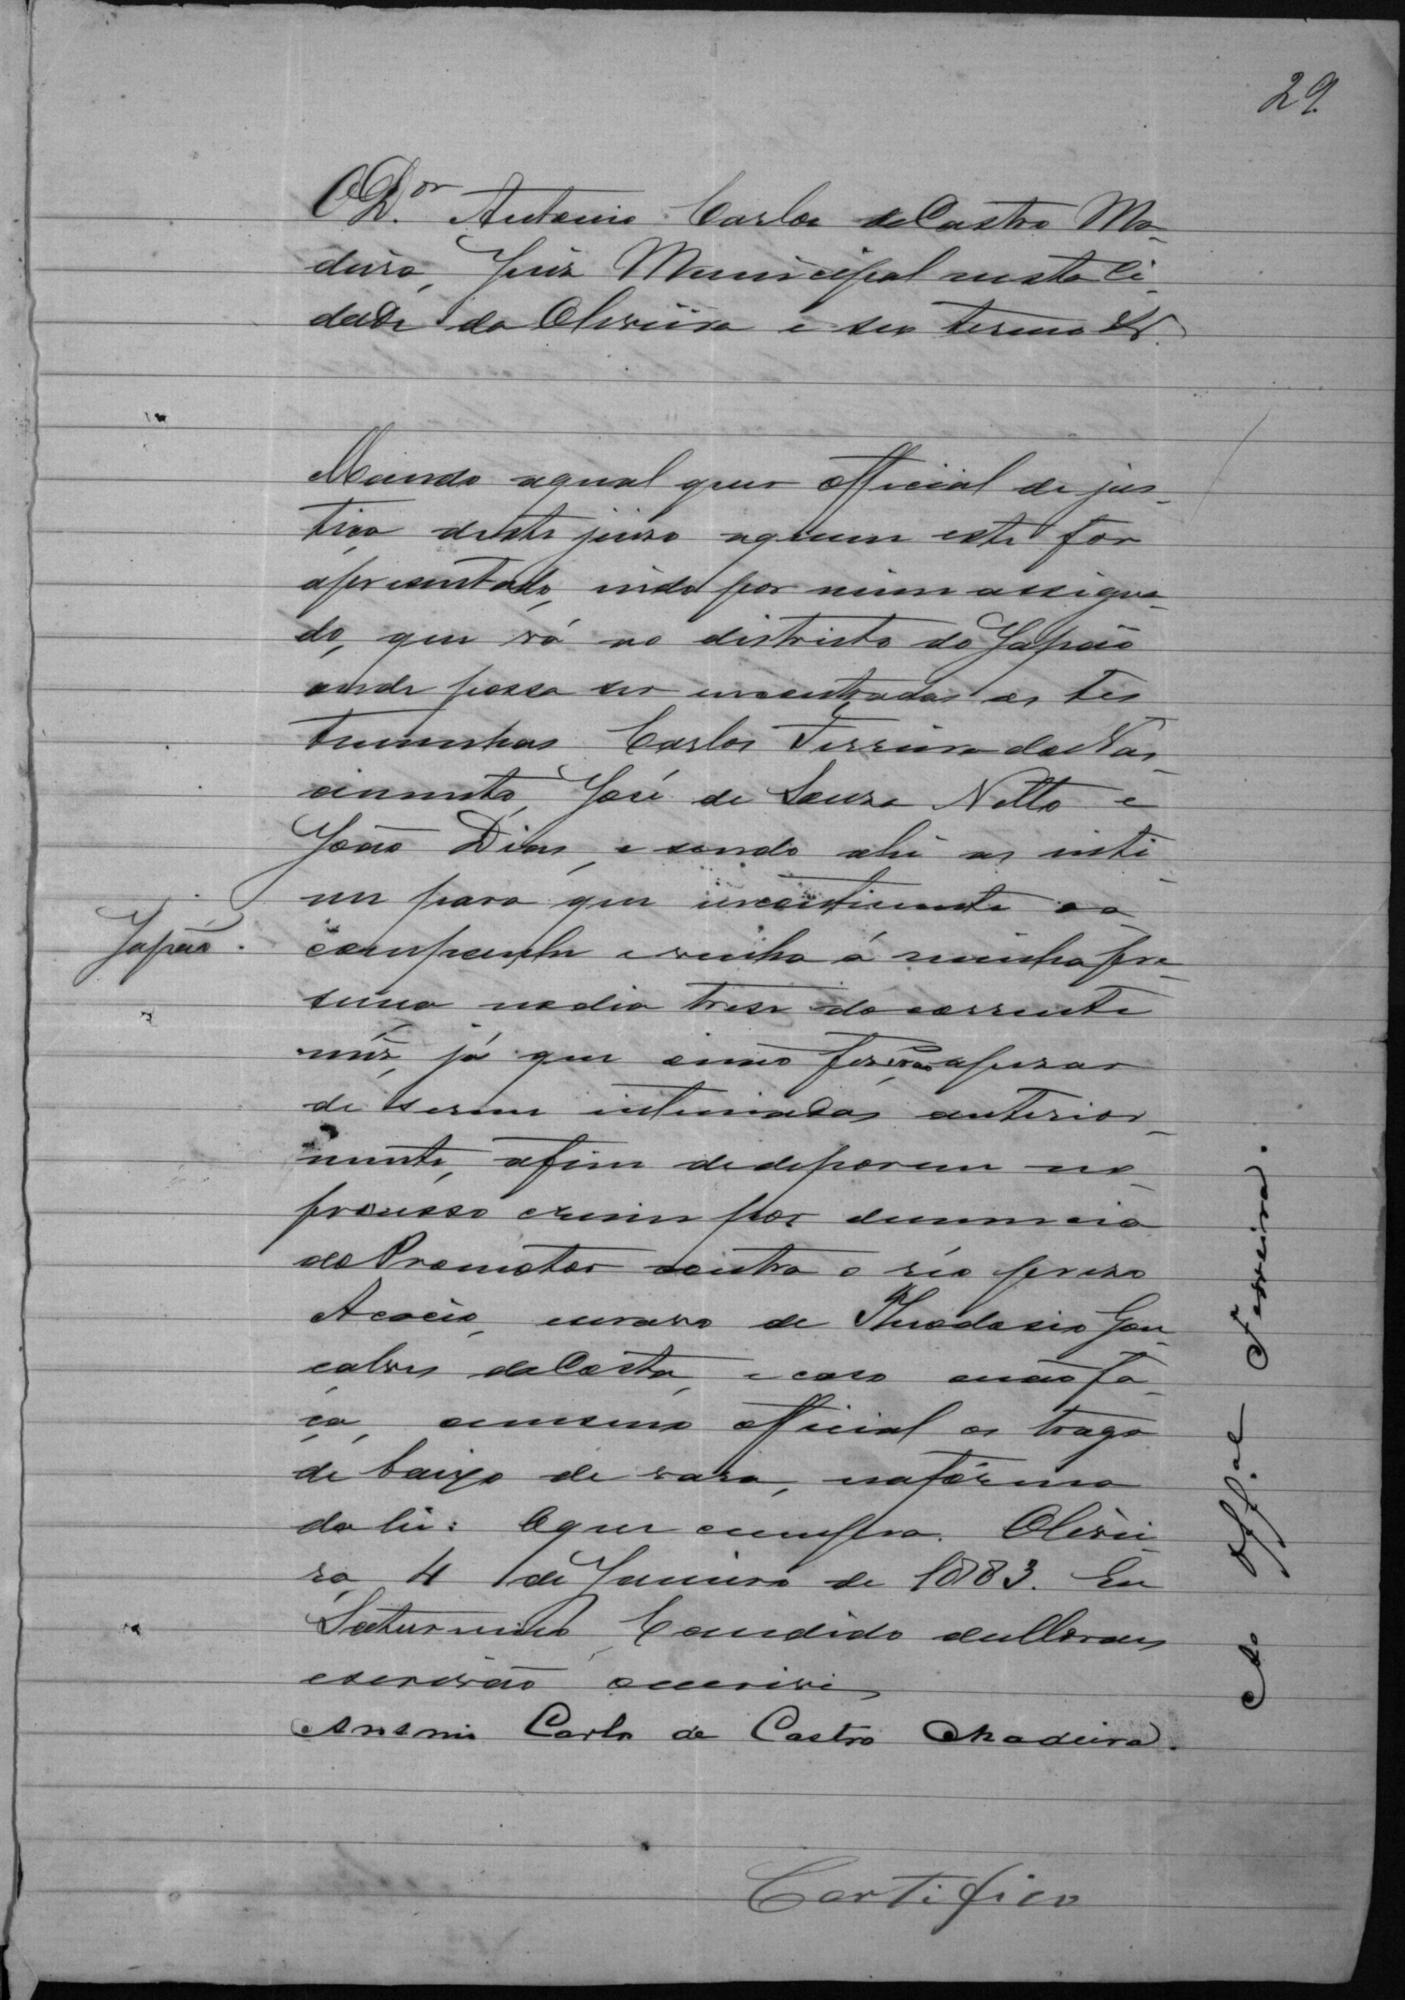 29
O Dor. Antonio Carlos de Castro Ma-
deira, Juiz Municipal nesta Ci-
dade da Oliveira e seo termo &.
Mando aqual quer official de jus-
tiça deste juizo aquem este for
apresentado, indo por mim assigna-
do, que vá ao districto do Japão
onde possa ser encontradas as tes
temunhas Carlos Ferreira do Nas-
cimento, José de Souza Netto e
João Dias, e sendo ahi as inti-
me para que incontinente o a
Japão.
companhe e venha á minha pre-
sença no dia trese do corrente
mez, já que onão fiserão apesar
de serem intimadas anterior-
mente, afim de deporem no
processo crime por denuncia
do Promotor contra o réo preso
Acacio, escravo de Theodosio Gon
calves da Costa, e caso onão fa-
ça, omesmo official as traga
de baixo de vara, nafórma
da lei: Oque cumpra. Olivei-
ra, 4 de Janeiro de 1883. Eu
Saturnino Candido de Moraes
escrivão oescrivi
Antonio Carlos de Castro Madeira.
Ao Offal Ferreira.
Certifico